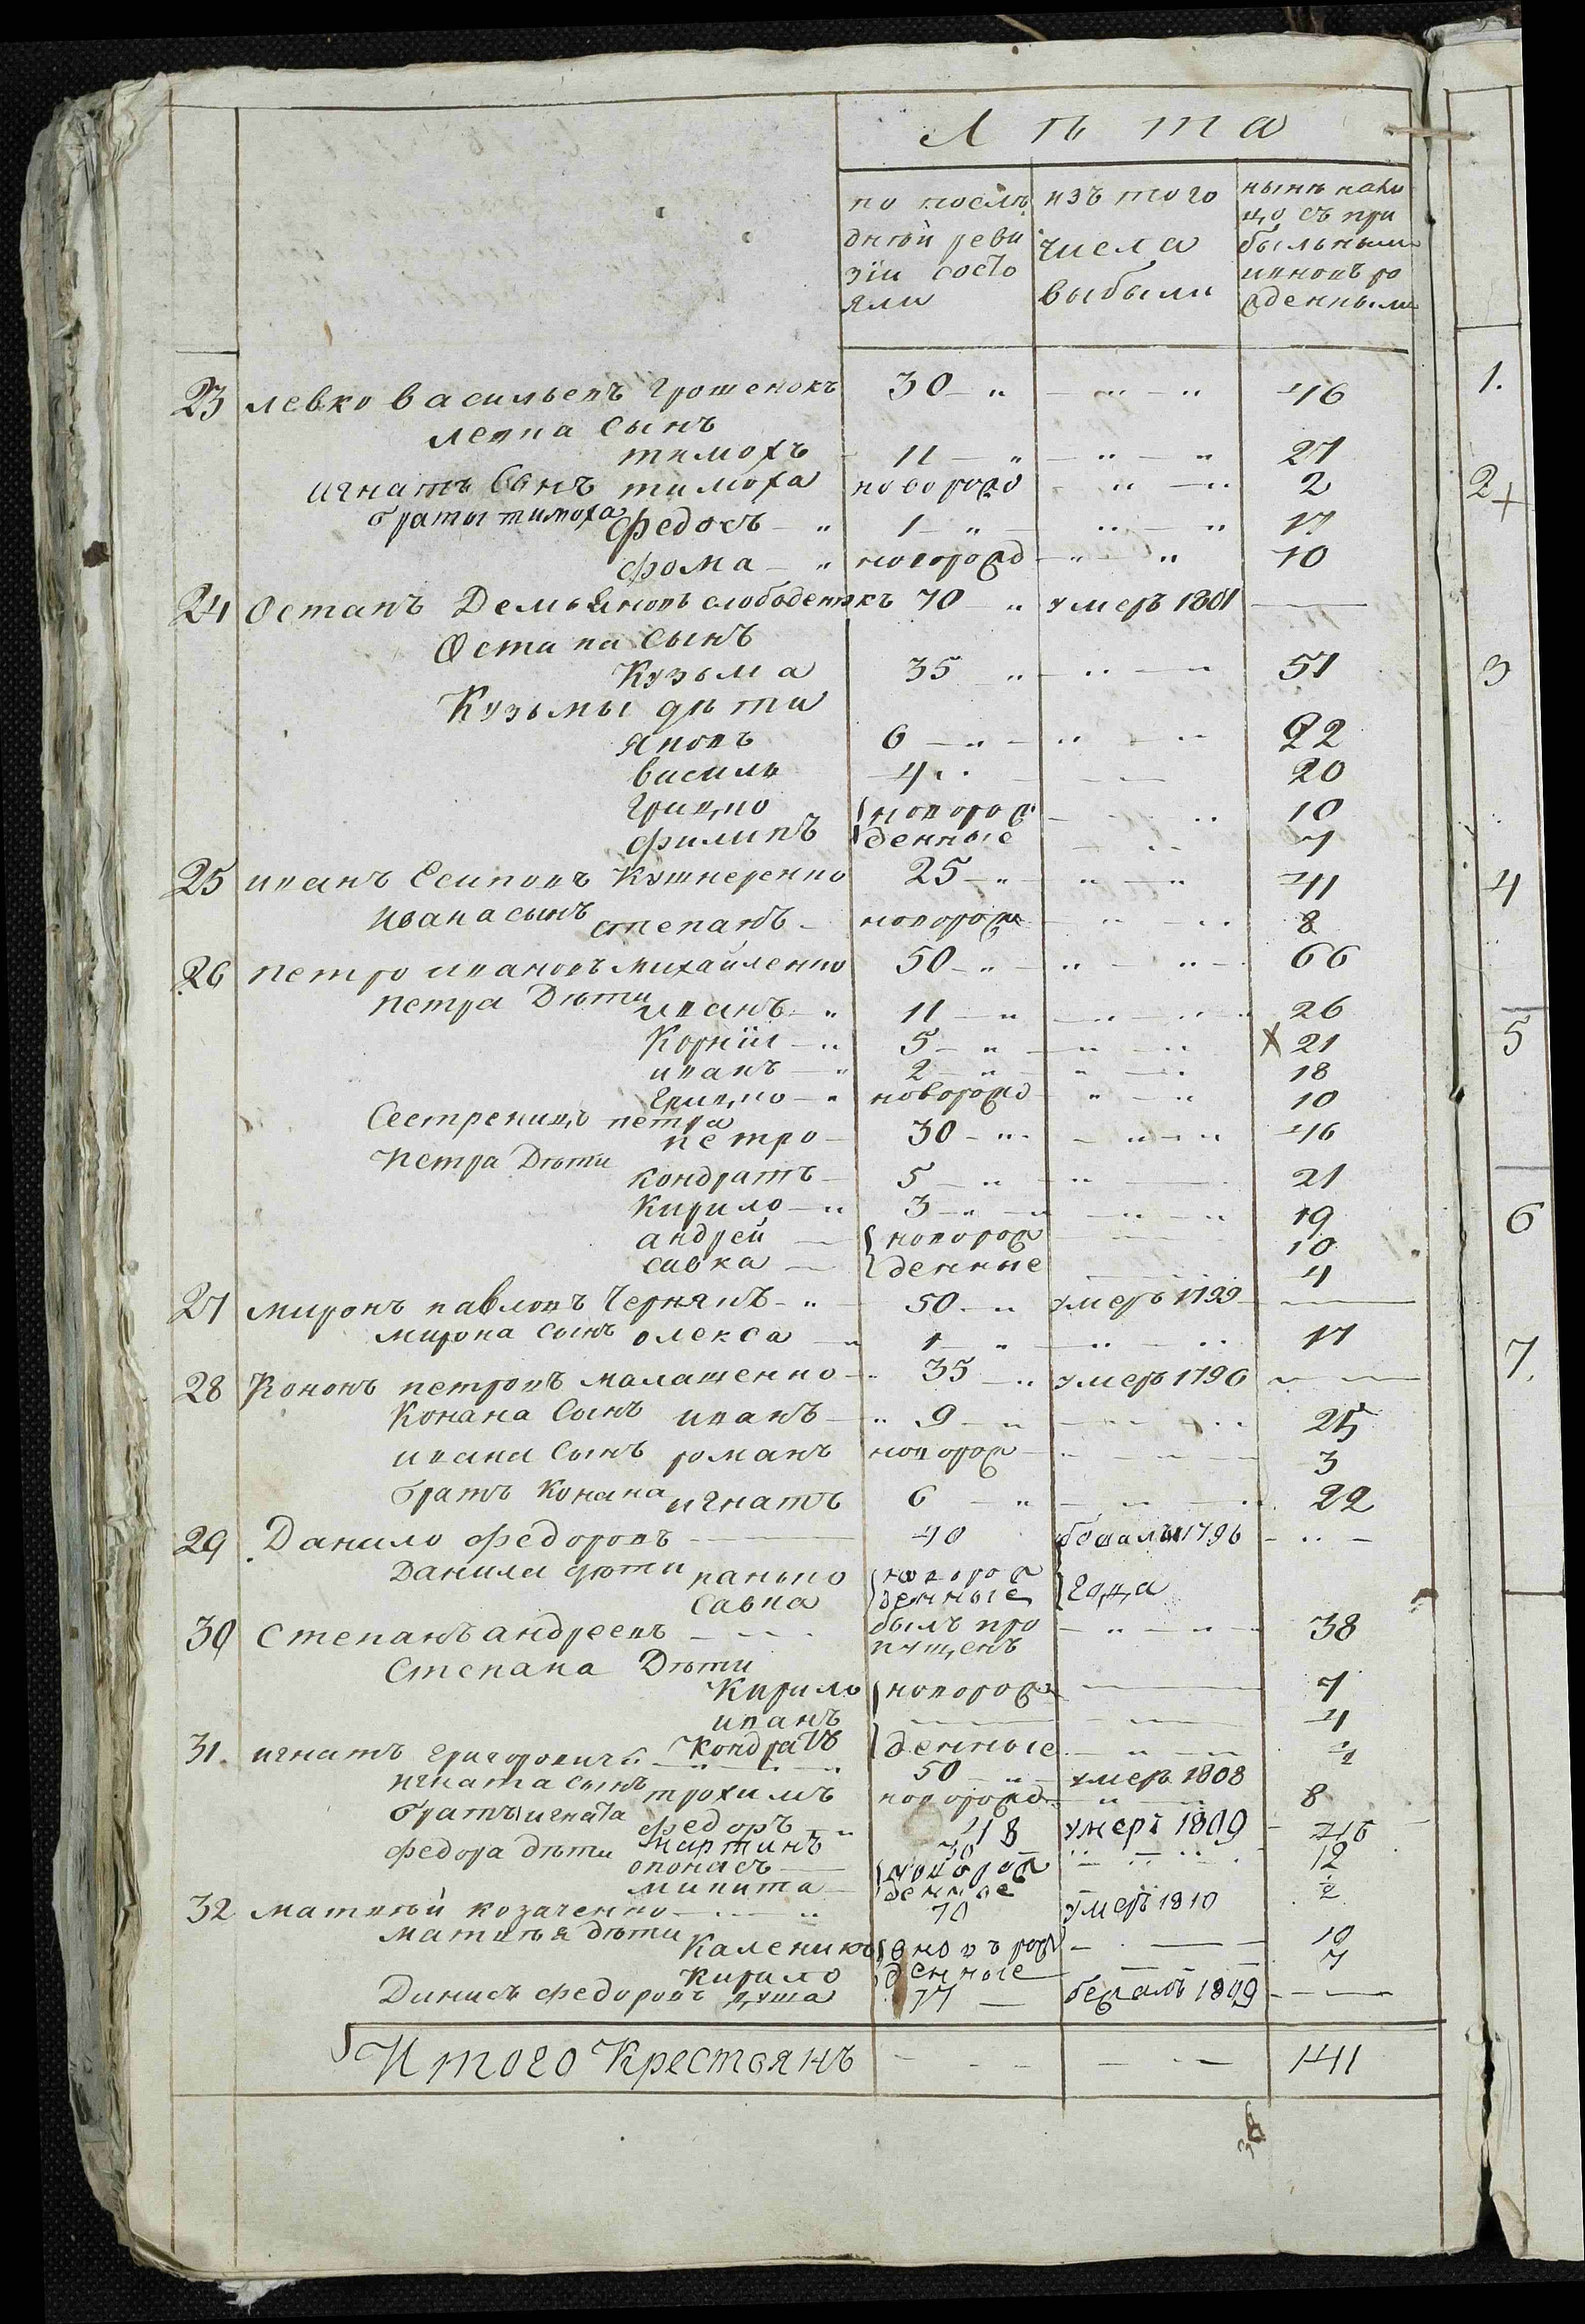 Лѣта
по послѣ изъ того нынѣ нали
дней реви числа цо съ при
зіи состо выбыли быльными
яли и новъ ро
жденными
23 левко васильевъ Грошенокъ 30 46
левка сынъ
тимохъ 11 27
игнатъ сынъ тимоха новорожд 2
браты тимоха Федосъ 1 17
фома новорожд 10
24 Остапъ Демьяновъ слободеникъ 70 умеръ 1801
Остапа сынъ
Кузьма 35 51
Кузьмы дѣти
яковъ 6 22
василь 4 20
Грицко новорож 10
филипъ денные 7
25 иванъ Есиповъ Кушнеренко 25 41
Ивана сынъ степанъ новорож 8
26 петро ивановъ михайленко 50 66
петра Дѣти иванъ 11 26
Корнiй 5 х 21
иванъ 2 18
Грицко новорожд 10
Сестреницъ петра
петро 30 46
Петра Дѣти
кондратъ 5 21
Кирило 3 19
андрей новорож 10
савка денные 4
27 миронъ павловъ Чернякъ 50 умеръ 1799
мирона сынъ олекса 1 17
28 Кононъ петровъ малашенко 35 умеръ 1796
Конана сынъ иванъ 9 25
ивана сынъ романъ новорож 3
братъ Конана игнатъ 6 22
29 Данило федоровъ 40 бежалъ 1796
Данила дѣти панько новорож года
Савка денные
30 Степанъ андреевъ былъ про 38
пущенъ
Степана Дѣти
Кирило новорож 7
иванъ 4
Кондратъ денные
31. игнатъ григоровичъ 50 умеръ 1808
игната сынъ трохимъ новорожд 8
братъ игната федоръ 48 умеръ 1809
федора дѣти мартинъ 30 46
опонасъ новорож 12
микита денные 2
32 матвѣй козаченко 70 умеръ 1810
матвѣя дѣти Каленикъ новъ рож 10
Кирило денные 7
Динисъ федоровъ душа 17 бежалъ 1809
Итого Крестьянъ 141
1.
2
3
4
5
6
7.